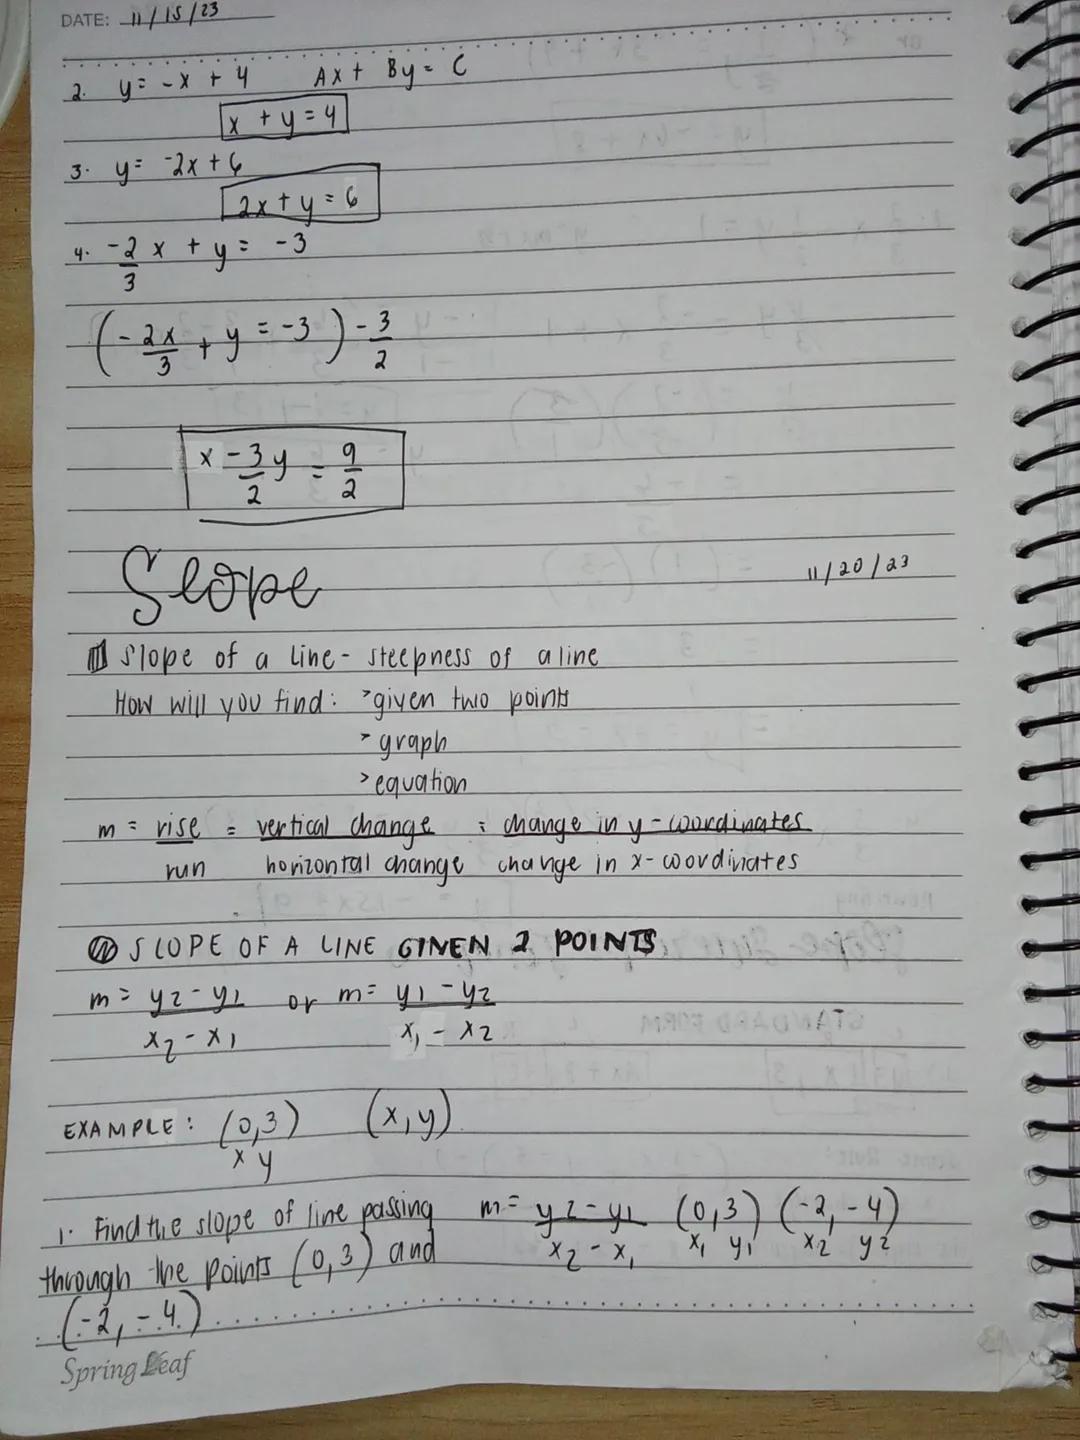 DATE: 11/15/23
2. y = -x + 4 Ax + By = C
x + y = 4
3. y = -2x + 6
2x + y = 6
4. -2/3 x + y = -3
(-2x/3 + y = -3) -3/2
x -3/2 y = 9/2
Slope
11/20/23
Slope of a line - steepness of a line
How will you find: >given two points
>graph
>equation
m = rise/run = vertical change/horizontal change = change in y-coordinates/change in x-coordinates
SLOPE OF A LINE GIVEN 2 POINTS
m = y2 - y1 / x2 - x1 or m = y1 - y2 / x1 - x2
EXAMPLE: (0,3) (x,y)
x y
1. Find the slope of line passing m = y2 - y1 / x2 - x1 (0,3) (-2, -4)
x1 y1 x2 y2
through the points (0,3) and
(-2, -4)
Spring Leaf